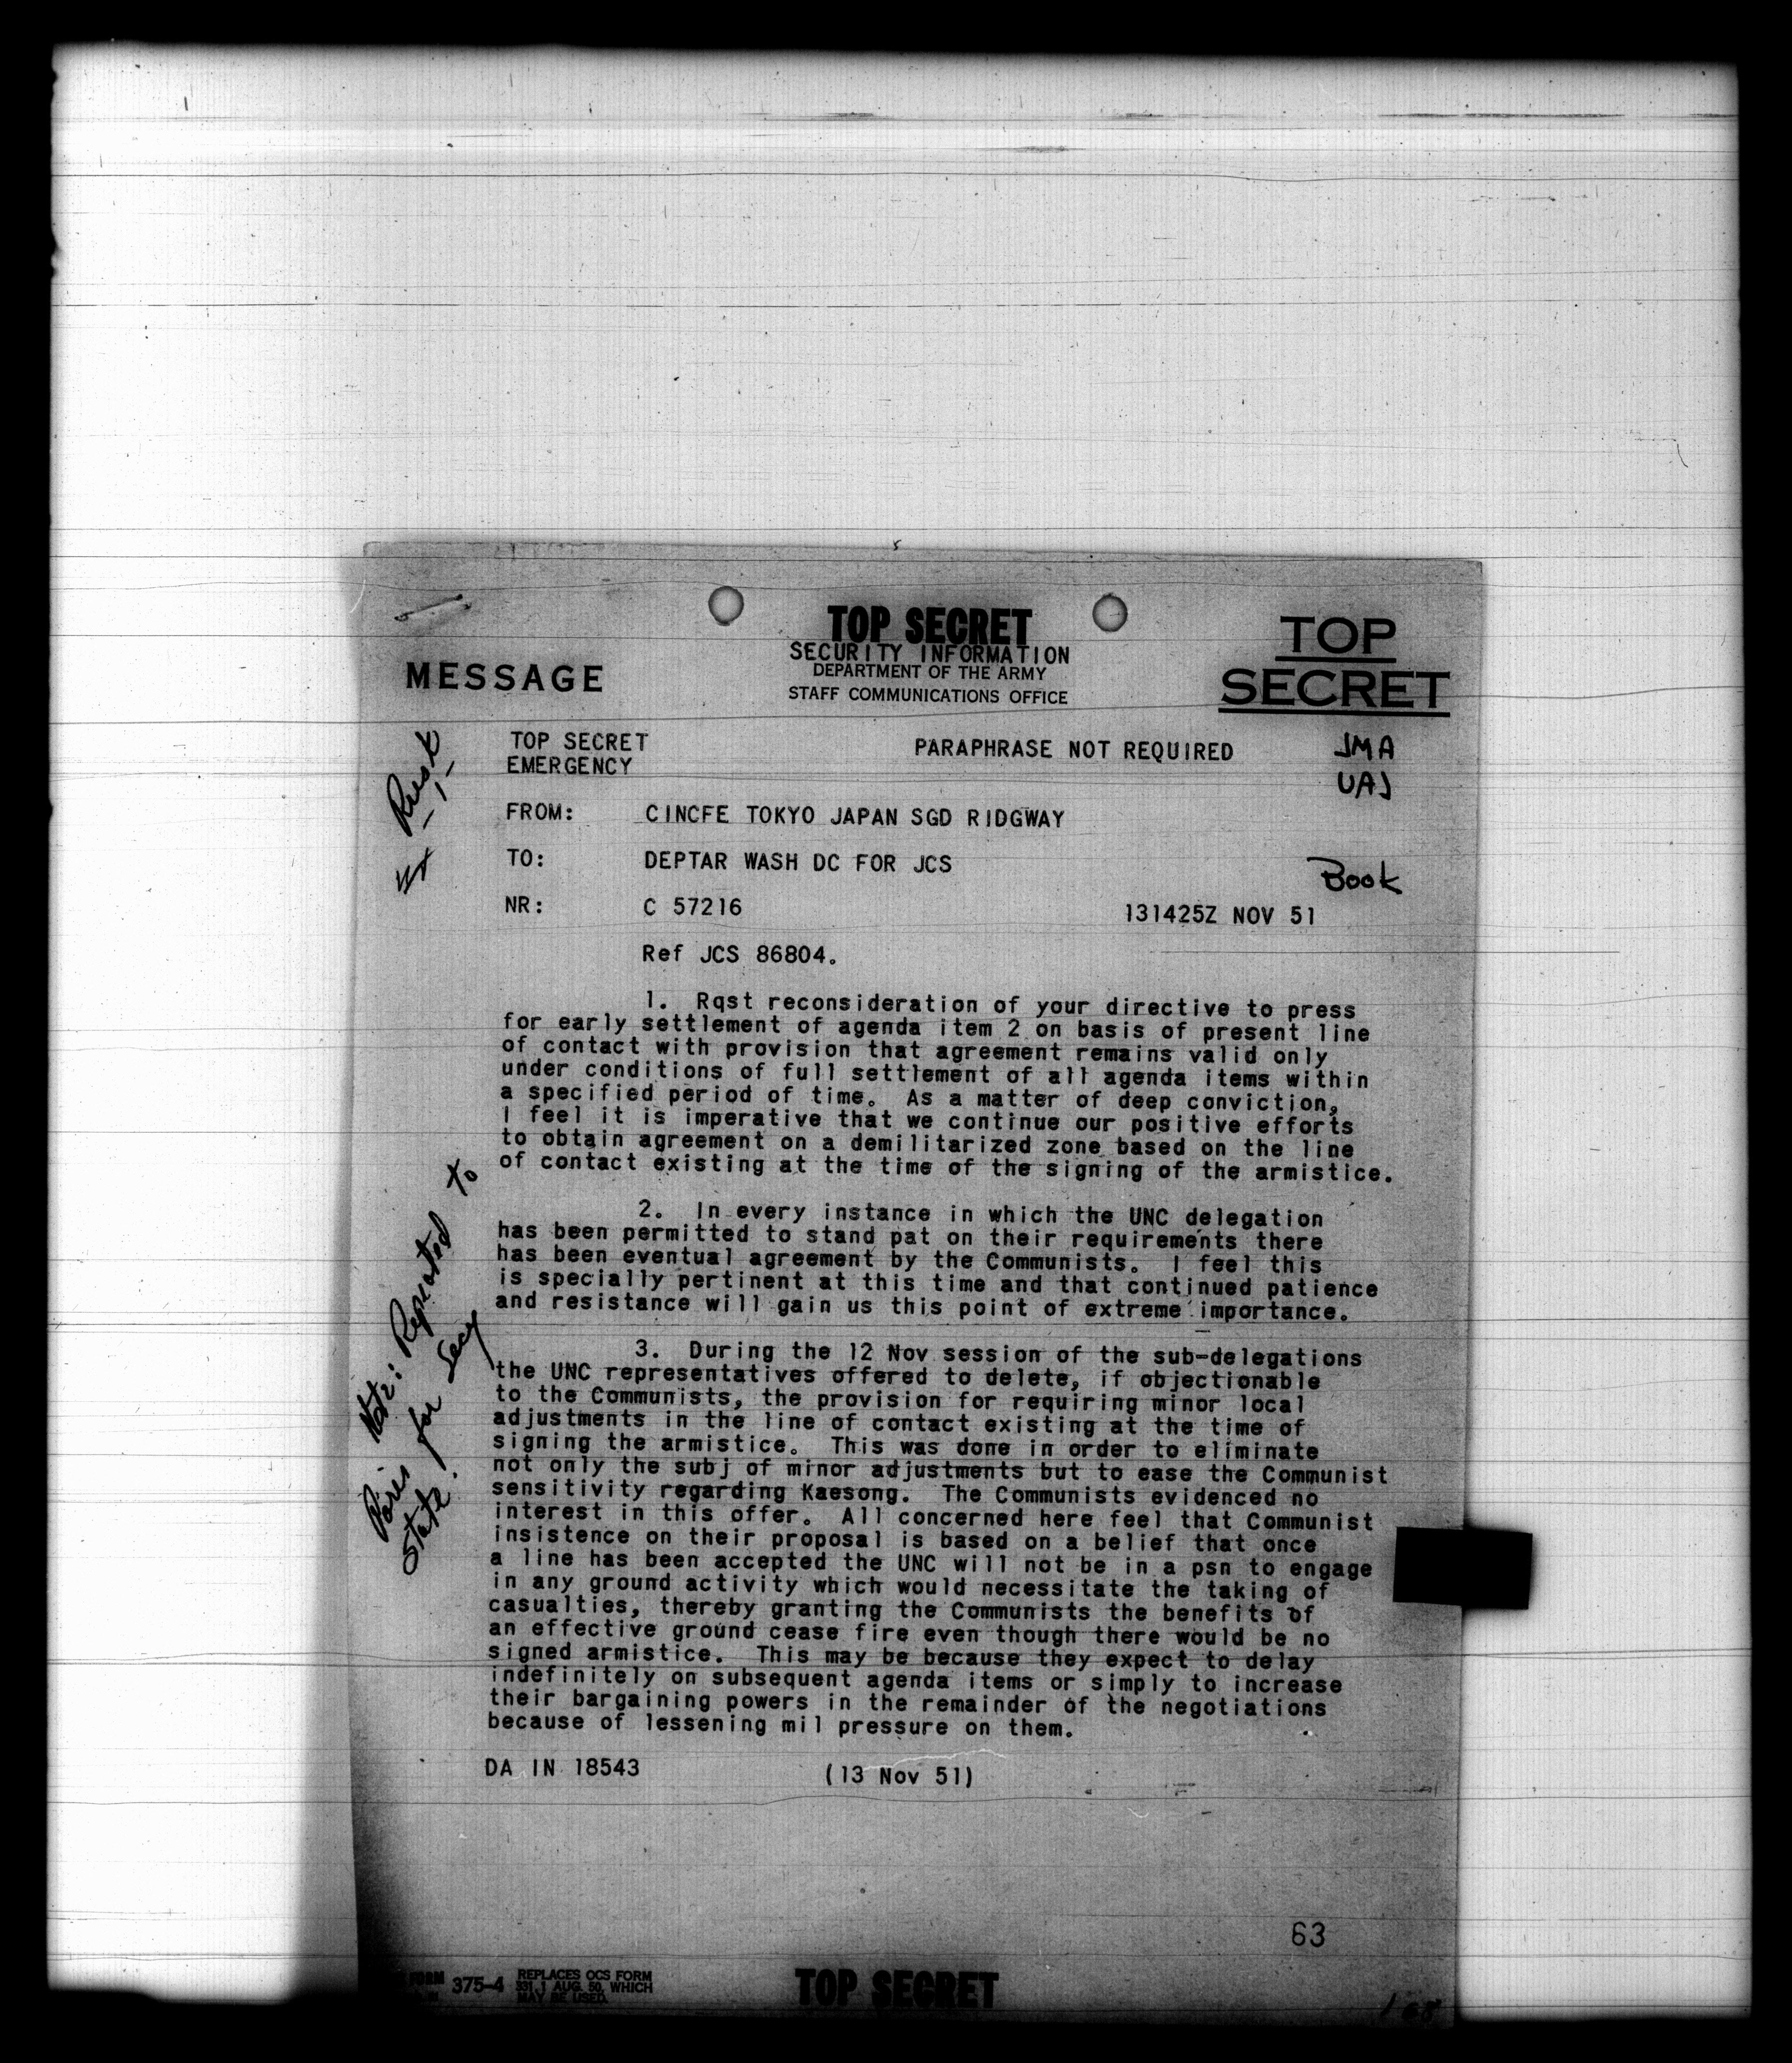 TOP SECRET
SECURITY INFORMATION
DEPARTMENT OF THE ARMY
STAFF COMMUNICATIONS OFFICE
MESSAGE
TOP
SECRET
TOP SECRET
EMERGENCY
PARAPHRASE NOT REQUIRED
JMA
UAJ
Rusk
FROM: CINCFE TOKYO JAPAN SGD RIDGWAY
TO: DEPTAR WASH DC FOR JCS
Book
NR: C 57216 131425Z NOV 51
Ref JCS 86804.
1. Rqst reconsideration of your directive to press
for early settlement of agenda item 2 on basis of present line
of contact with provision that agreement remains valid only
under conditions of full settlement of all agenda items within
a specified period of time. As a matter of deep conviction,
I feel it is imperative that we continue our positive efforts
to obtain agreement on a demilitarized zone based on the line
of contact existing at the time of the signing of the armistice.
2. In every instance in which the UNC delegation
has been permitted to stand pat on their requirements there
has been eventual agreement by the Communists. I feel this
is specially pertinent at this time and that continued patience
and resistance will gain us this point of extreme importance.
Note: Repeated to
Paris for Secy
State.
3. During the 12 Nov session of the sub-delegations
the UNC representatives offered to delete, if objectionable
to the Communists, the provision for requiring minor local
adjustments in the line of contact existing at the time of
signing the armistice. This was done in order to eliminate
not only the subj of minor adjustments but to ease the Communist
sensitivity regarding Kaesong. The Communists evidenced no
interest in this offer. All concerned here feel that Communist
insistence on their proposal is based on a belief that once
a line has been accepted the UNC will not be in a psn to engage
in any ground activity which would necessitate the taking of
casualties, thereby granting the Communists the benefits of
an effective ground cease fire even though there would be no
signed armistice. This may be because they expect to delay
indefinitely on subsequent agenda items or simply to increase
their bargaining powers in the remainder of the negotiations
because of lessening mil pressure on them.
DA IN 18543 (13 Nov 51)
63
FORM 375-4
REPLACES OCS FORM
331, 1 AUG. 50, WHICH
MAY BE USED.
TOP SECRET